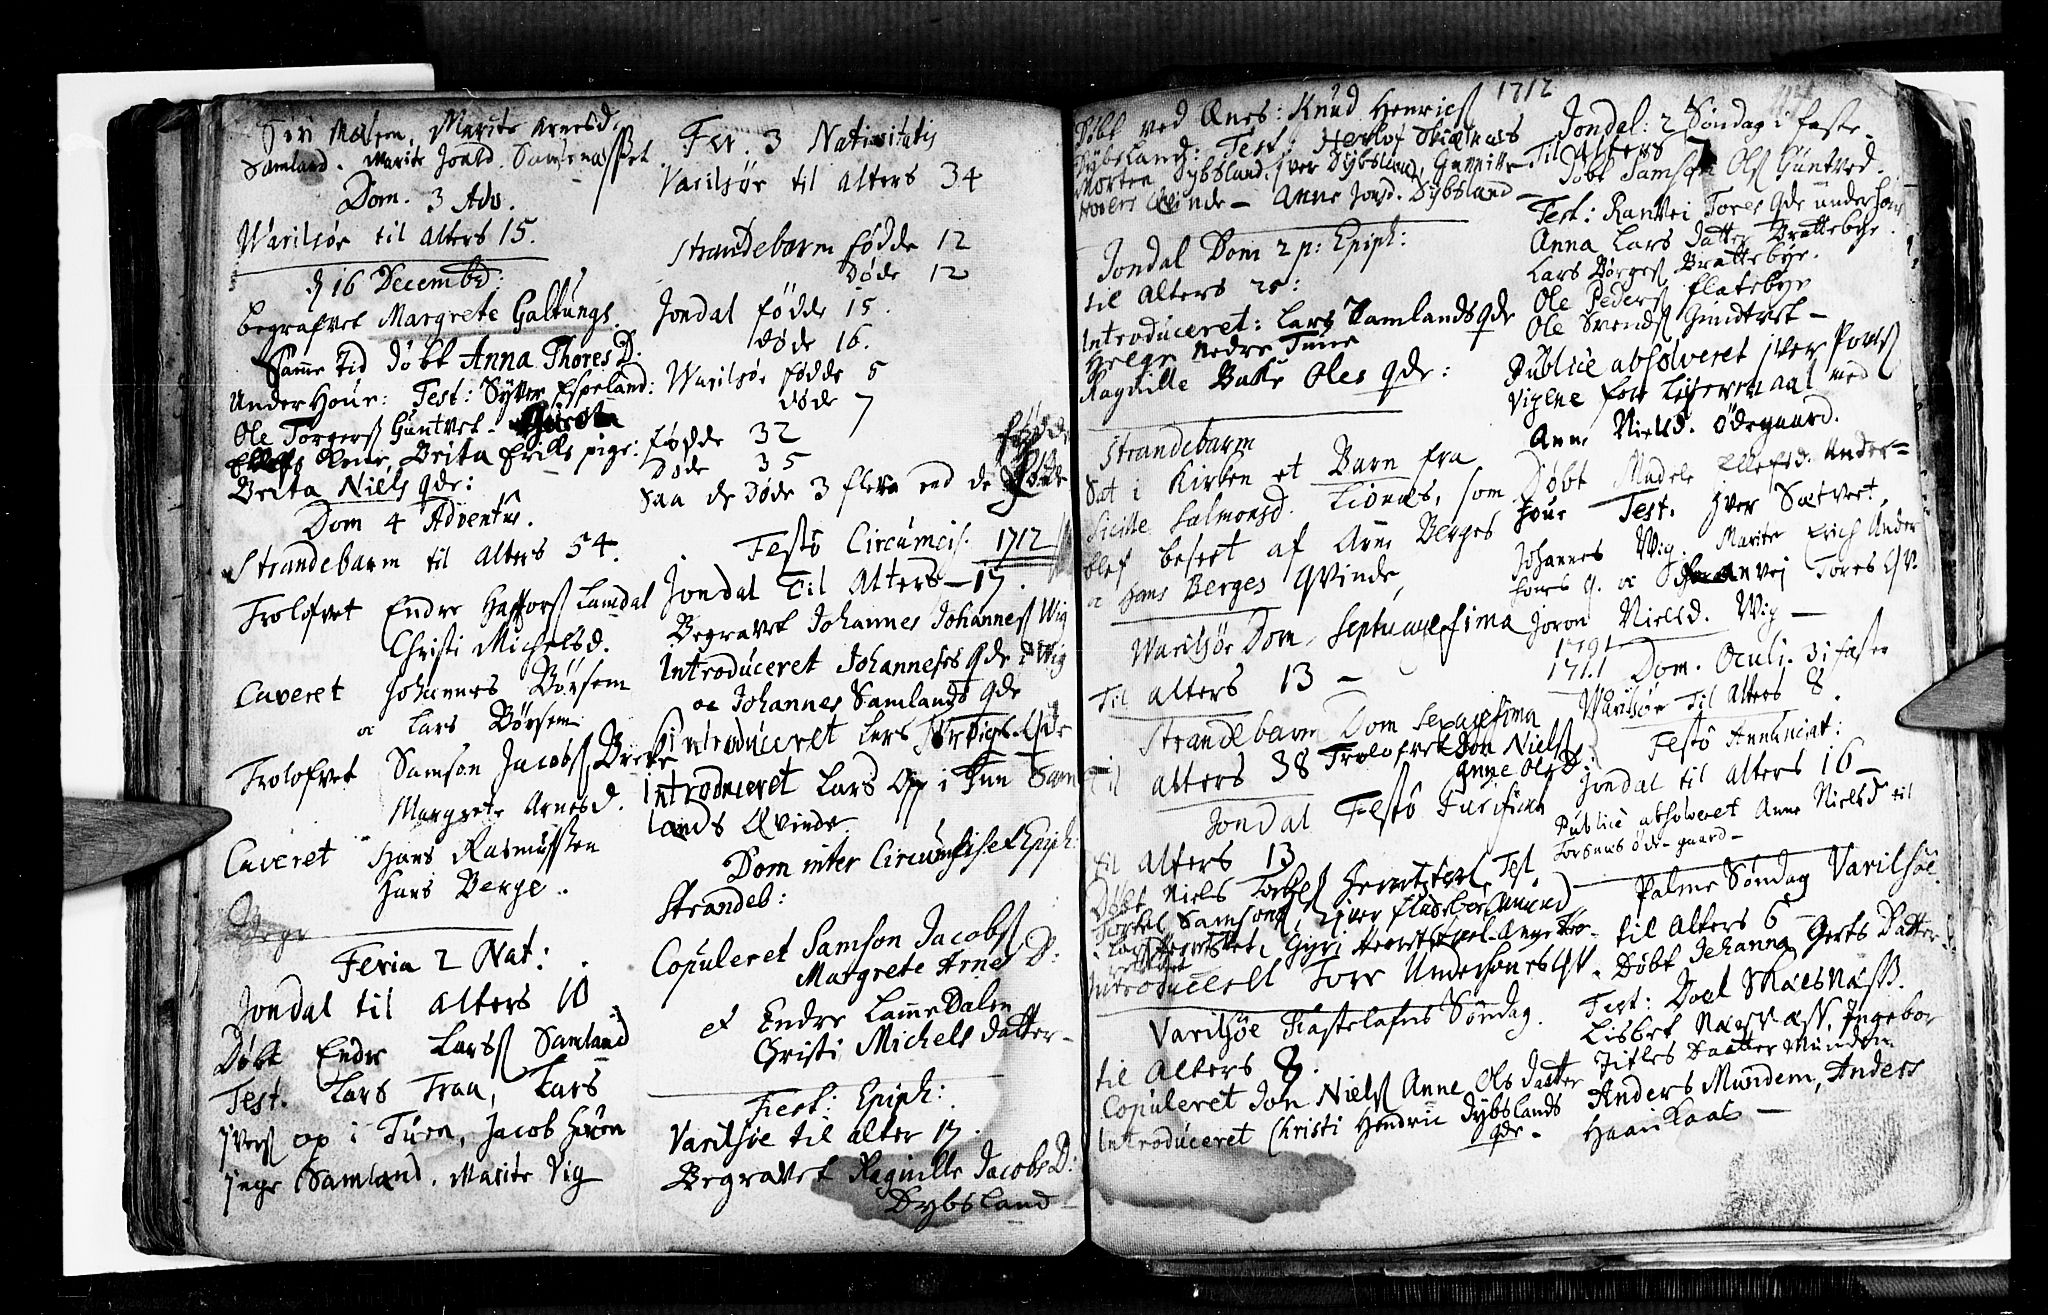 Siri Malen, Marite Arnesd.
Samland. Marite Joald. Samsonæsset
Dom. 3 Adv.
Warilsöe til alters 15.
d 16 Decembr:
begrafvet Margrete Galtungs.
Samme tid döbt Anna Thores D.
Underhoue: Test: Syver Espeland:
Ole Torgers Guntvet -
Brita Eriks pige:
Brita Niels qde:
Dom 4 Adventus.
Strandebarm til alters 54.
Trolofvet Endre Haffors Lamdal
Christi Michelsd.
Caveret Johannes Börsem
oc Lars Börsem
Trolofvet Samson Jacobs Breke
Margrete Arnesd.
Caveret Hans Rasmussen
Hans Berge.
Begr
Feria 2 Nat:
Jondal til alters 10
Döbt Endre Larss Samland
Test. Lars Traa, Lars
Ivers op i Tuen, Jacob Houen
Inge Samland. Marite Vig
Fer. 3 Nativitatis
Varilsöe til alters 34
Strandebarm födde 12
döde 12
Jondal födde 15.
döde 16.
Warilsöe födde 5
döde 7
födde 32
Döde 35
Saa de döde 3 flere end de födde
Festo Circumcis. 1712
Jondal Til Alters - 17.
Begravet Johannes Johanness Wig
Introduceret Johanneses qde i Wig
oc Johannes Samlands qde
Introduceret Lars qde
Introduceret Lars Opp i Tun Sam
lands Qvinde
Dom inter Circumcis et Epiph:
Strandeb:
Copuleret Samson Jacobs
Margrete Arnes D:
et Endre Lamme Dalen
Christi Michels datter -
Fest: Epiph:
Varilsöe til alter 17.
Begravet Ragnille Jacobs D:
Dybsland
1712
Döbt ved Ænes: Knud Henrics
Dybsland: Test: Herlof Skiælnæs
Morten Dybsland, Iver Dybsland, Gunnille
Hovers Qvinde - Anne Jonsd. Dybsland -
Jondal Dom 2 p: Epiph:
til Alters 20:
Introduceret: Lars Samlands qde
Nedre Tune
Ragnille Bakke Oles qde:
Strandebarm
Sat i Kirken et Barn fra
Sicille Salmonsd. Lionæs, som
blef besert af Arne Berges
oc Hans Berges Qvinde,
Warilsöe Dom. Septuagesima
Til alters 13 -
Strandebarm Dom Sexagesima
til alters 38 Trolofvet Jon Niels
Anne Ols D:
Jondal Festo Purificat
til alters 13
Döbt Niels Test
Torkel Samsons, Iver Fladeböe
Introduceret Tore Underhoues qv.
Varilsöe Fastelafns Söndag.
til Alters 8.
Copuleret Jon Niels Anne Ols datter
Introduceret Christi Hendric Dybslands
qde.
Jondal: 2 Söndag i faste -
Til alters 7
Döbt Samson Ols Guntved.
Test: Ranvei Tores qde underhoue
Anna Lars datter Brattebye.
Lars Börges Brattebye.
Ole Peders Flatebye
Ole Svends Gundtvet -
Publice absolveret Iver Povels
Vigene for Leiermaal med
Anne Nielsd. Ödegaard.
Döbt Madele Ellefsd. Under-
houe Test. Iver Sætvet,
Johannes Wig. Marite Erich Under
houes q. oc Ranvei Tores Qv.
Joron Nielsd. Wig -
1711 Dom. Oculi. 3 i faste
Warilsöe til Alters 8.
Festo Annunciat:
Jondal til alters 16 -
Publice absolveret Anne Nielsd til
Torsnæs öde-gaard -
Palme Söndag Varilsöe.
til Alters 6
Döbt Jehanna Gerts Datter
Test: Doel Skaelsnæss.
Lisbet Næsvass. Ingebor
Datter Munden
Anders Mundem, Anders
Haaikaas -